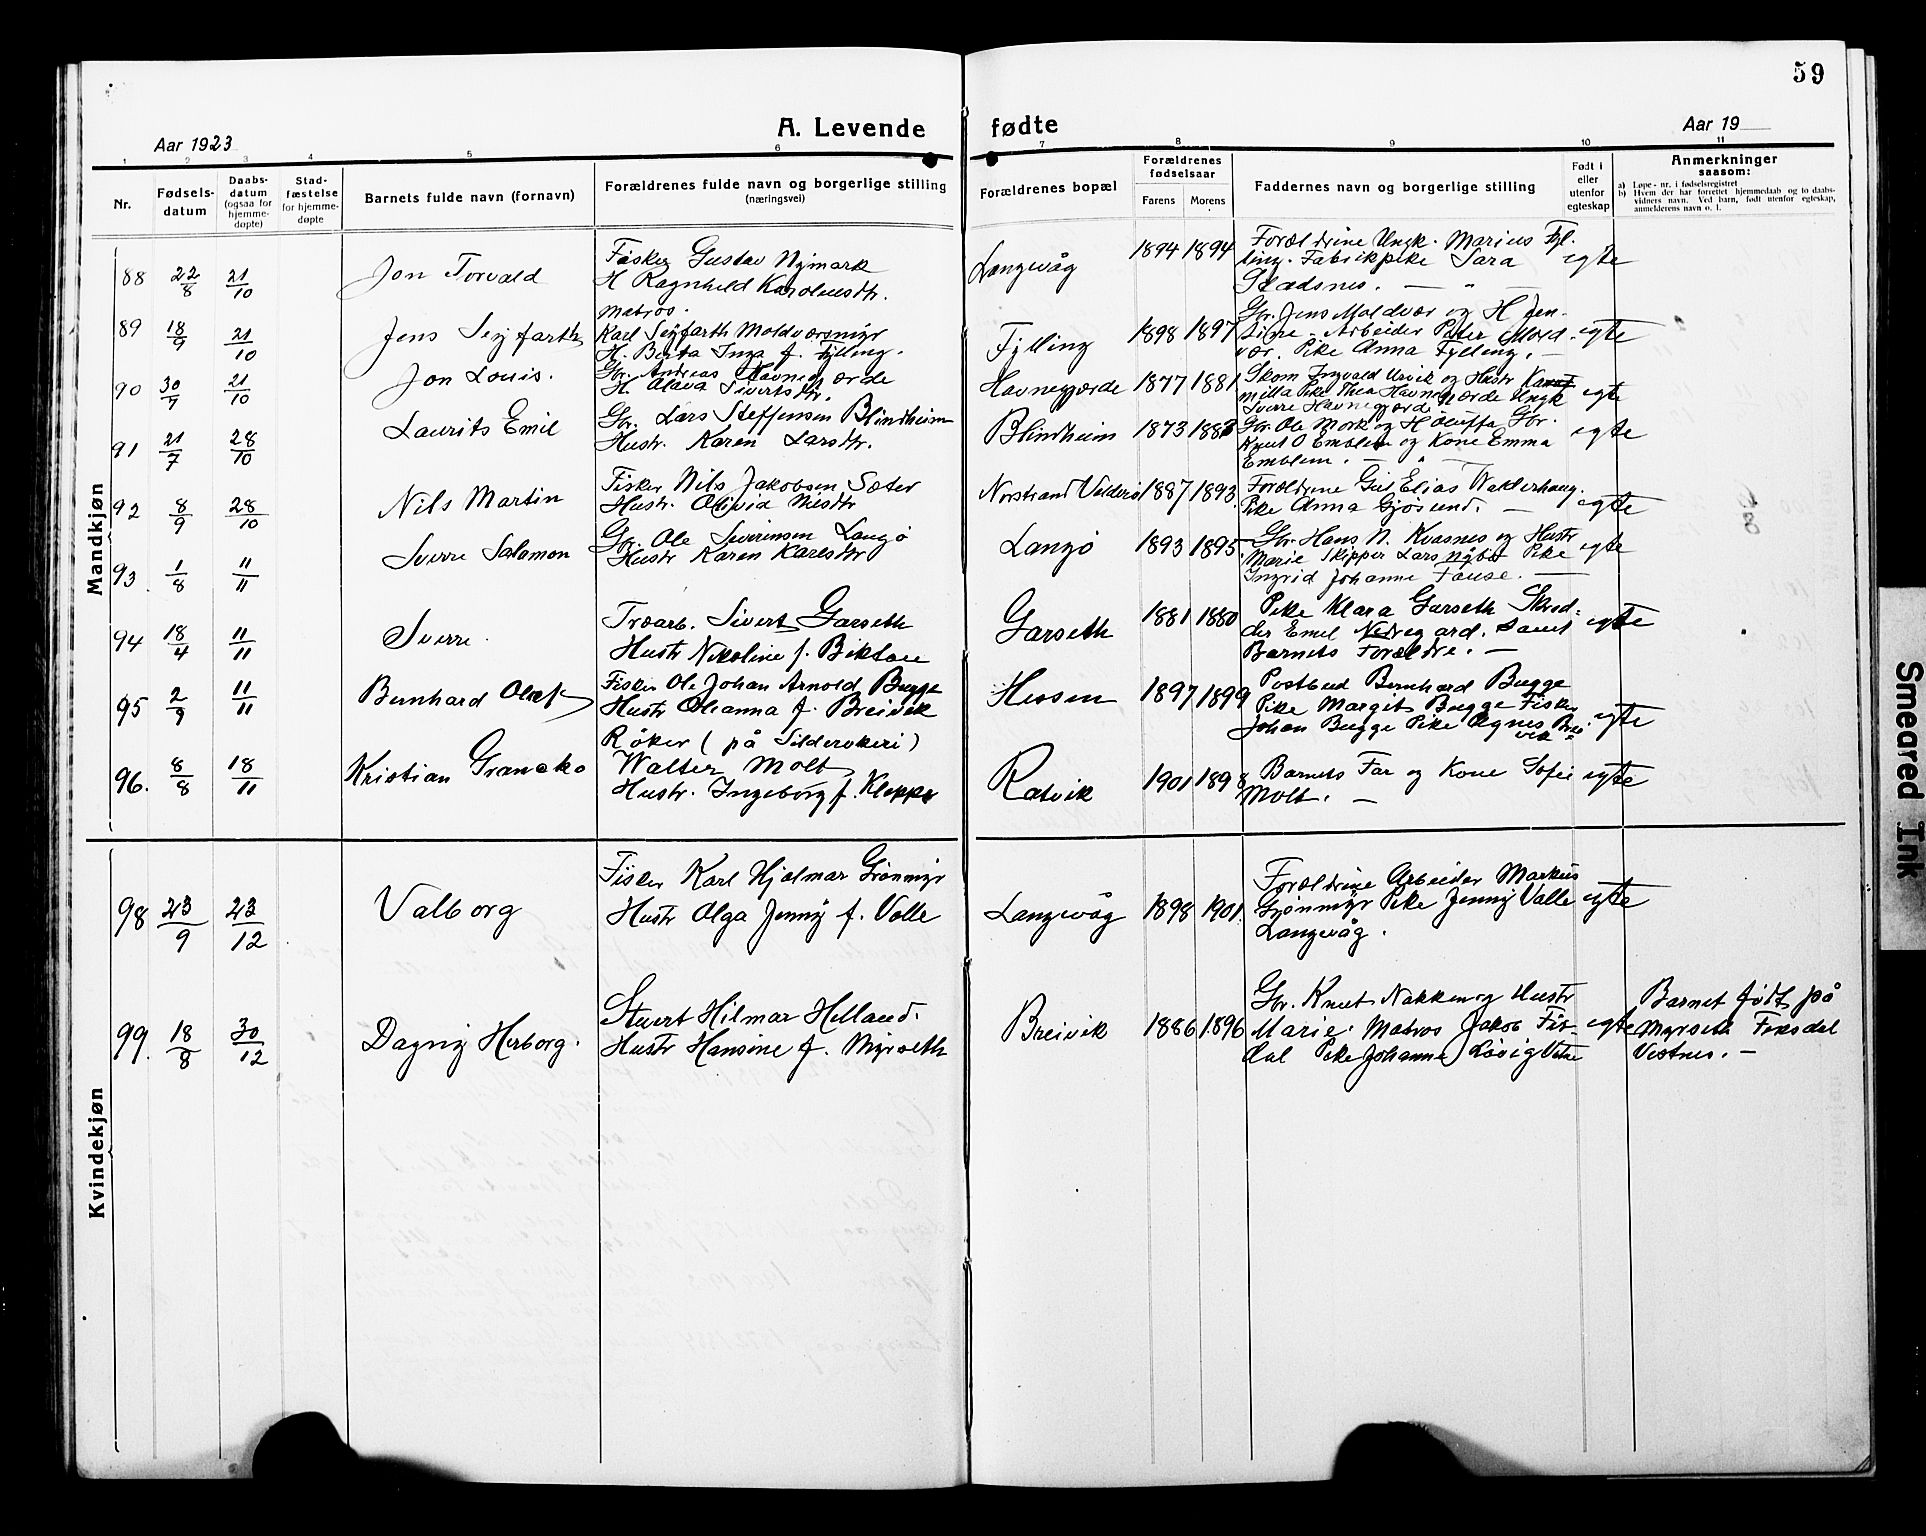 59
A. Levende fødte
Aar 1923
Aar 19
1 2 3 4 5 6 7 8 9 10 11
Nr.
Fødsels-
datum
Daabs-
datum
(ogsaa for
hjemme-
døpte)
Stad-
fæstelse
for hjemme-
døpte
Barnets fulde navn (fornavn)
Forældrenes fulde navn og borgerlige stilling
(næringsvei)
Forældrenes bopæl
Forældrenes
fødselsaar
Farens Morens
Faddernes navn og borgerlige stilling
Født i
eller
utenfor
egteskap
Anmerkninger
saasom:
a) Løpe-nr. i fødselsregistret
b) Hvem der har forrettet hjemmedaab og to daabs-
vidners navn. Ved barn, født utenfor egteskap,
anmelderens navn o. l.
Mandkjøn
88 22/8 21/10 Jon Torvald
Fisker Gustav Nymark
H Ragnhild Karolusdtr.
Langevåg 1894 1894
Forældrine Ungk. Marius Fyl-
ling. Fabrikpike Sara
Gladsnes. — " —
egte
89 18/9 21/10 Jens Seyfarth
Matros.
Karl Seyfarth Moldværsmyr
H. Berta Inga f. Fylling.
Fylling 1898 1897
Gbr. Jens Moldvær og H Jen-
sine. Arbeider Peter Mold-
vær. Pike Anna Fylling. —
egte
90 30/9 21/10 Jon Louis.
Gbr. Andreas Havnegjærde
H. Olava Sivertsdtr.
Havnegjærde 1877 1881
Skom Ingvald Ursvik og Hustr
milla Pike Thea Havnegjærde Ungk
Sverre Havnegjærde
egte
91 21/7 28/10 Laurits Emil
Gbr. Lars Steffensen Blindheim
Hustr. Karen Larsdtr.
Blindheim 1873 1883
Gbr. Ole Mork og H Oluffa Gbr.
Knut O Emblem og Kone Emma
Emblem. — " —
egte
92 8/9 28/10 Nils Martin
Fisker Nils Jakobsen Sæter
Hustr. Olivia Nilsdtr
Norstrand Valderø 1887 1893
Forældrine Gbr Elias Walderhaug.
Pike Anna Gjøsund. —
egte
93 1/8 11/11 Sverre Salomon
Gbr. Ole Severinsen Langø
Hustr. Karen Karlsdtr
Langø 1893 1895
Gbr. Hans N. Kvasnes og Hustr
Marie Skipper Lars Nybø Pike
Ingrid Johanne Fause. —
egte
94 18/4 11/11 Sverre
Træarb. Sivert Garseth
Hustr Nikoline f. Biktau
Garseth 1881 1880
Pike Klara Garseth Skræd-
der Emil Nedregård. Samt
Barnets Forældre. —
egte
95 2/9 11/11 Bernhard Oluf
Fisker Ole Johan Arnold Bugge
Hustr Oleanna f. Breivik
Hessen 1897 1899
Postbud Bernhard Bugge
Pike Margit Bugge Fisker
Johan Bugge Pike Agnes Brei-
vik
egte
96. 8/8 18/11 Kristian Grancko
Røker (på Silderøkeri)
Walter Molt
Hustr. Ingeborg f. Kleppe
Ratvik 1901 1898
Barnets Far og Kone Sofie
Molt. —
egte
Kvindekjøn
98 23/9 23/12 Valborg
Fisker Karl Hjalmar Grønmyr
Hustr Olga Jenny f. Valle
Langevåg 1898 1901
Forældrine Arbeider Markus
Grønmyr Pike Jenny Valle
Langevåg.
egte
99. 18/8 30/12 Dagny Herborg.
Stuert Hilmar Helland.
Hustr Hansine f. Myrseth
Breivik 1886 1896
Gbr. Knut Nakken og Hustr
Marie. Matros Jakob Fis-
dal Pike Johanne Løvig Vatne
egte
Barnet født på
Myrseth Fiksdal
Vestnes. —
Smeared Ink